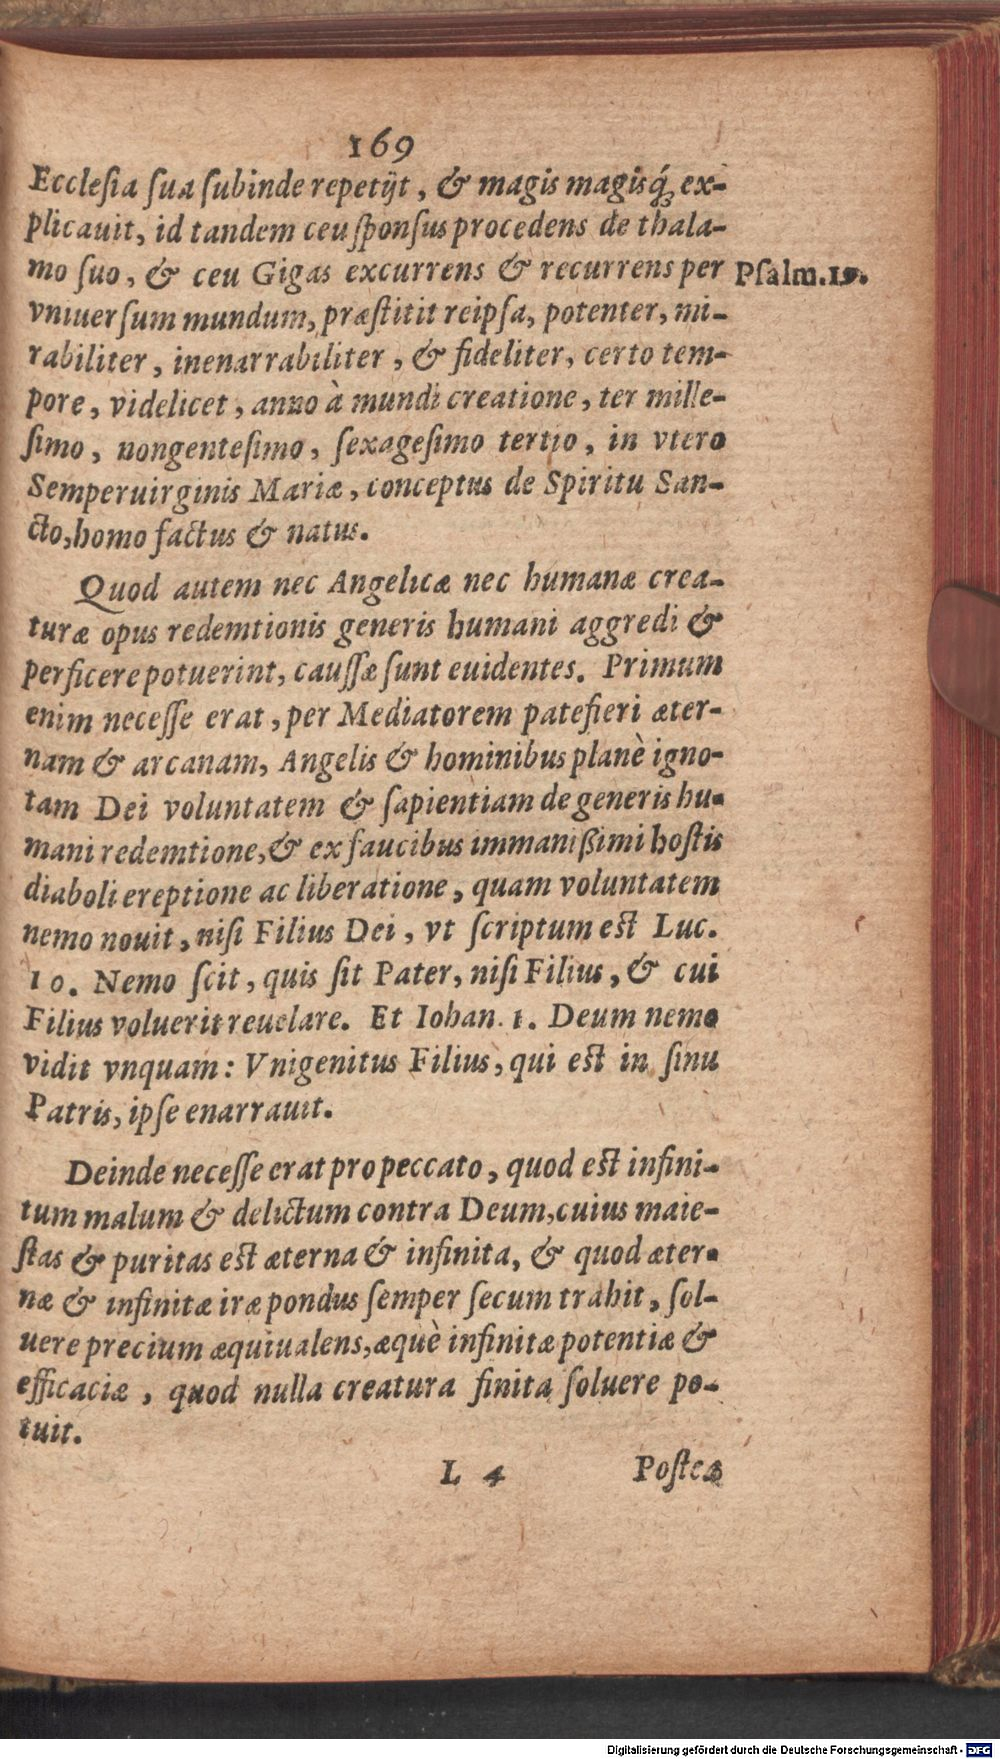 169
Eccleſia ſua ſubinde repetijt, & magis magisq́; ex-
plicauit, id tandem ceu ſponſus procedens de thala-
mo ſuo, & ceu Gigas excurrens & recurrens per Pſalm. 19.
vniuerſum mundum, præſtitit reipſa, potenter, mi-
rabiliter, inenarrabiliter, & fideliter, certo tem-
pore, videlicet, anno à mundi creatione, ter mille-
ſimo, nongenteſimo, ſexageſimo tertio, in vtero
Semperuirginis Mariæ, conceptus de Spiritu San-
cto, homo factus & natus.
Quod autem nec Angelicæ nec humanæ crea-
turæ opus redemtionis generis humani aggredi &
perficere potuerint, cauſſæ ſunt euidentes. Primum
enim neceſſe erat, per Mediatorem patefieri æter-
nam & arcanam, Angelis & hominibus planè igno-
tam Dei voluntatem & ſapientiam de generis hu-
mani redemtione, & ex faucibus immanißimi hoſtis
diaboli ereptione ac liberatione, quam voluntatem
nemo nouit, niſi Filius Dei, vt ſcriptum eſt Luc.
10. Nemo ſcit, quis ſit Pater, niſi Filius, & cui
Filius voluerit reuelare. Et Iohan. 1. Deum nemo
vidit vnquam: Vnigenitus Filius, qui eſt in ſinu
Patris, ipſe enarrauit.
Deinde neceſſe erat pro peccato, quod eſt infini-
tum malum & delictum contra Deum, cuius maie-
ſtas & puritas eſt æterna & infinita, & quod æter-
næ & infinitæ iræ pondus ſemper ſecum trahit, ſol-
uere precium æquiualens, æquè infinitæ potentiæ &
efficaciæ, quod nulla creatura finita ſoluere po-
tuit.
L 4 Poſtea
Digitalisierung gefördert durch die Deutsche Forschungsgemeinschaft - DFG